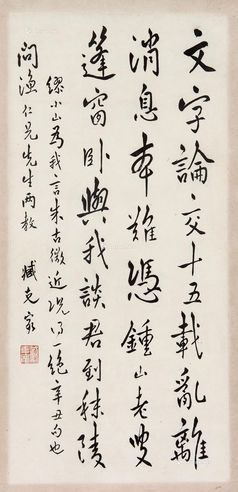 文字論交十五載亂離
消息本難憑鍾山老叟
蓬窗卧與我談君到秣陵
繆小山爲我言朱古微近況得一絕辛丑句也
問漁仁兄先生兩教
臧克家